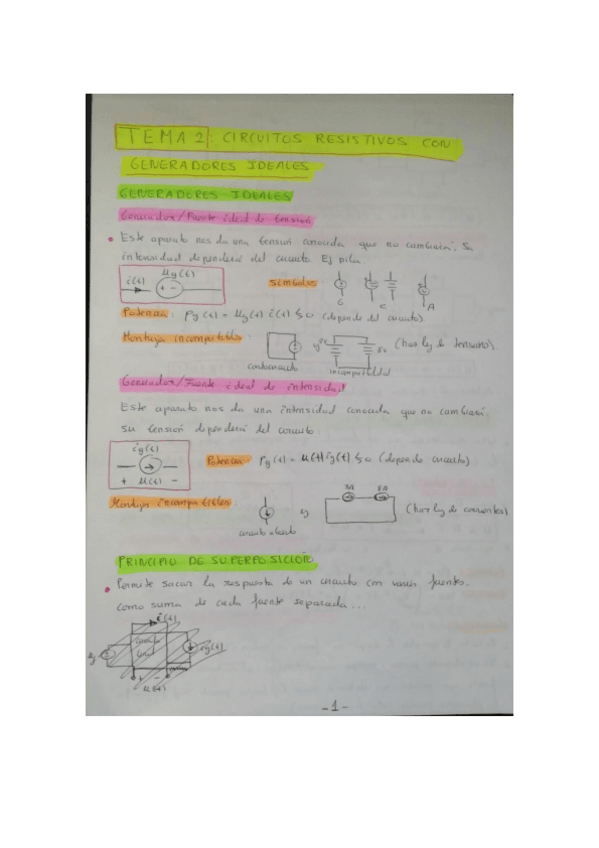 TEMA 2: CIRCUITOS RESISTIVOS CON
GENERADORES IDEALES
GENERADERES IDEALES
Generador/Fuente ideal de tensión
• Este aparato nos da una tensión conocida que no cambiará. Su
intensidad dependerá del circuito. Ej pila.
i(t) + - Ug(t)
Símbolos
C A
Potencia: Pg(t) = Ug(t) i(t) ≶ 0 (depende del circuito)
Montaje incompatible:
cortocircuito incompatibilidad (por ley de tensiones).
Generador/Fuente ideal de intensidad
Este aparato nos da una intensidad conocida que no cambiará.
su tensión dependerá del circuito.
ig(t)
+ U(t) -
Potencia: Pg(t) = U(t) ig(t) ≶ 0 (depende circuito)
Montaje incompatibles
circuito abierto (por ley de corrientes)
PRINCIPIO DE SUPERPOSICIÓN
• Permite sacar la respuesta de un circuito con varias fuentes.
como suma de cada fuente separada...
i(t)
ig(t)
+ -
U(t)
-1-